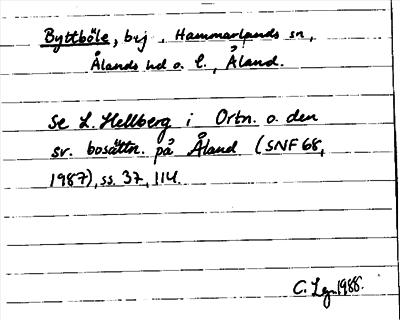 Byttböle, by, Hammarlands sn,
Ålands hd o. l., Åland.
Se L. Hellberg i Ortn. o. den
sv. bosättn. på Åland (SNF 68,
1987), ss. 37, 114.
C. Lgn 1988.